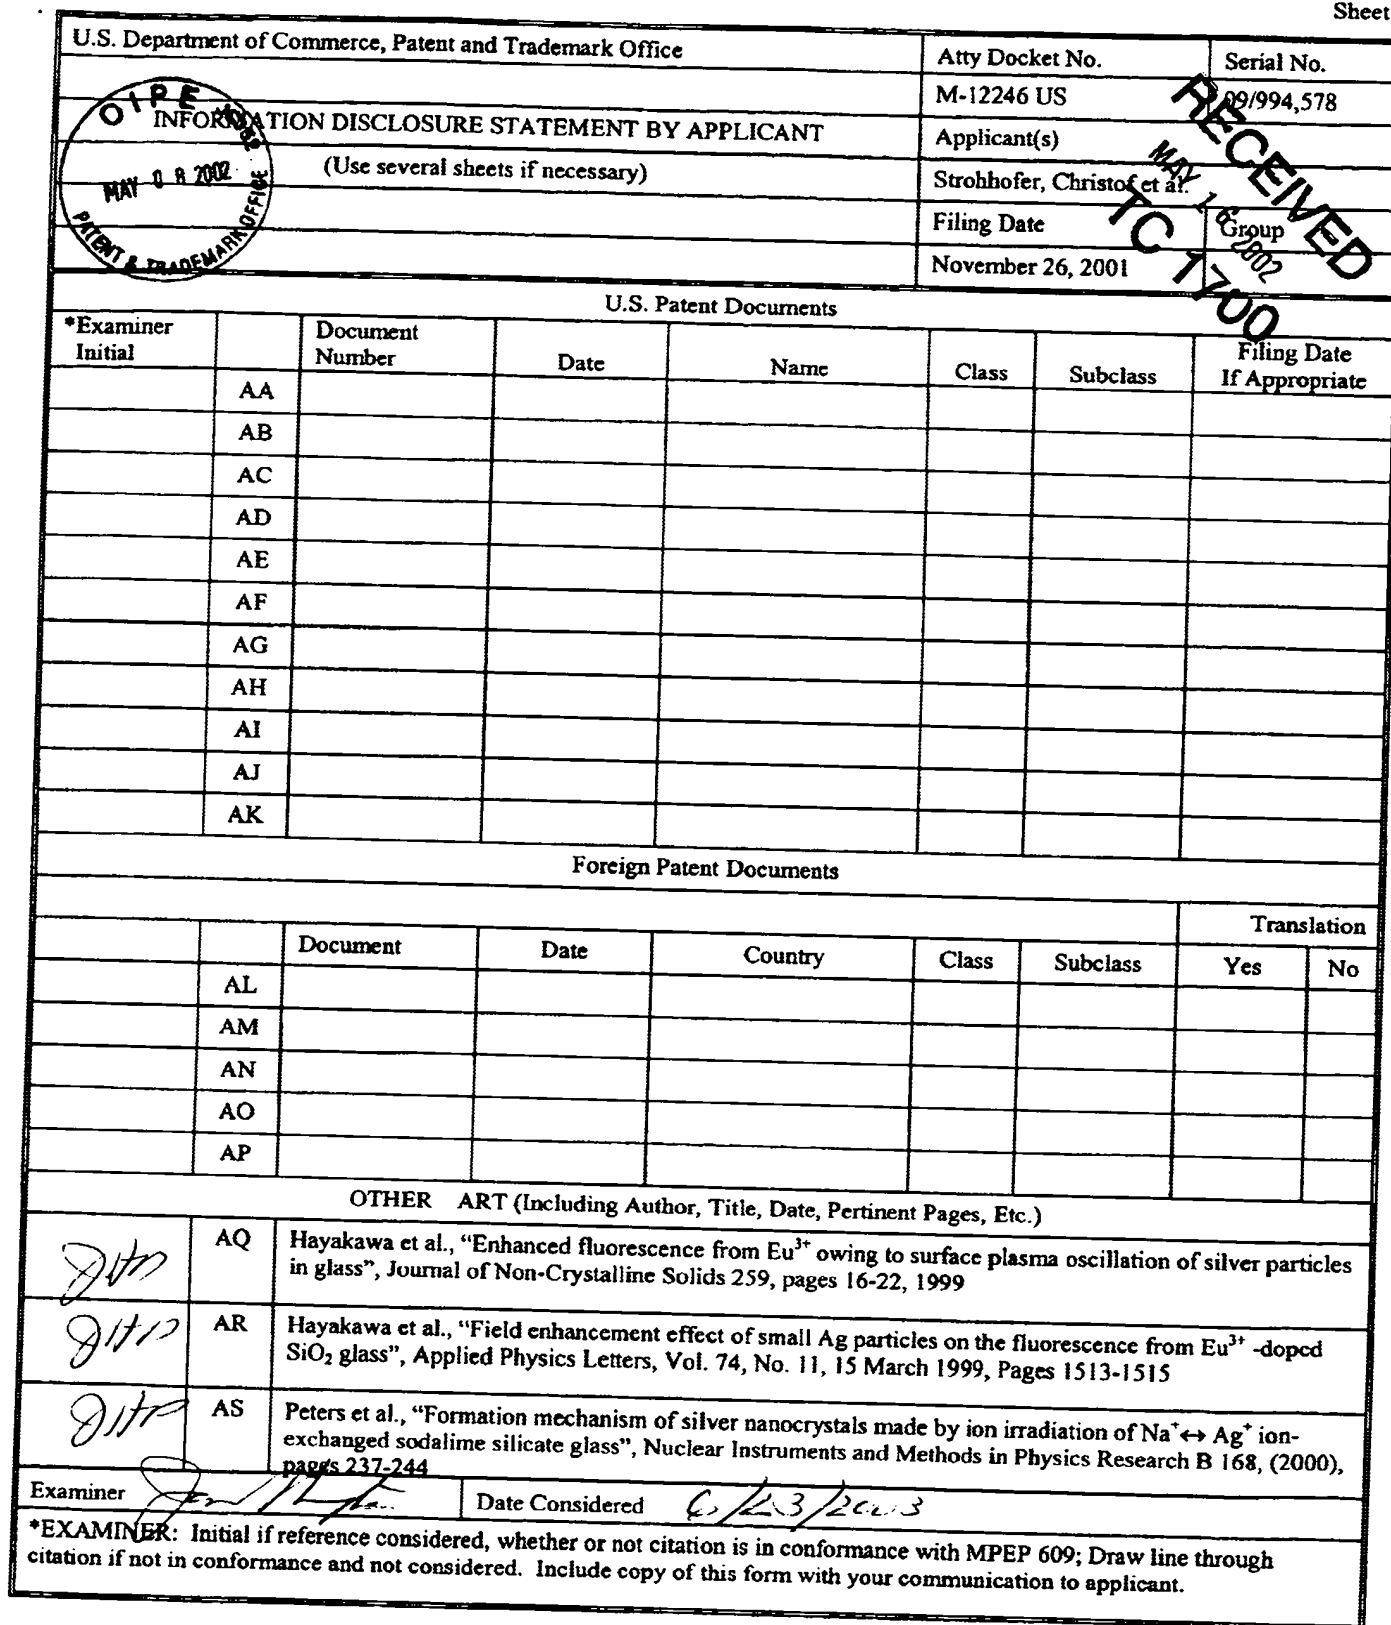 Sheet
U.S. Department of Commerce, Patent and Trademark Office
Atty Docket No.
Serial No.
M-12246 US
09/994,578
INFORMATION DISCLOSURE STATEMENT BY APPLICANT
Applicant(s)
(Use several sheets if necessary)
Strohhofer, Christof et al.
Filing Date
Group
November 26, 2001
OIPE
MAY 08 2002
PATENT & TRADEMARK OFFICE
RECEIVED
MAY 16 2002
TC 1700
U.S. Patent Documents
*Examiner Initial
Document Number
Date
Name
Class
Subclass
Filing Date If Appropriate
AA
AB
AC
AD
AE
AF
AG
AH
AI
AJ
AK
Foreign Patent Documents
Translation
Document
Date
Country
Class
Subclass
Yes
No
AL
AM
AN
AO
AP
OTHER ART (Including Author, Title, Date, Pertinent Pages, Etc.)
AQ
Hayakawa et al., “Enhanced fluorescence from Eu³⁺ owing to surface plasma oscillation of silver particles
in glass”, Journal of Non-Crystalline Solids 259, pages 16-22, 1999
AR
Hayakawa et al., “Field enhancement effect of small Ag particles on the fluorescence from Eu³⁺ -doped
SiO₂ glass”, Applied Physics Letters, Vol. 74, No. 11, 15 March 1999, Pages 1513-1515
AS
Peters et al., “Formation mechanism of silver nanocrystals made by ion irradiation of Na⁺↔ Ag⁺ ion-
exchanged sodalime silicate glass”, Nuclear Instruments and Methods in Physics Research B 168, (2000),
pages 237-244
Examiner
Date Considered 6/23/2003
*EXAMINER: Initial if reference considered, whether or not citation is in conformance with MPEP 609; Draw line through
citation if not in conformance and not considered. Include copy of this form with your communication to applicant.